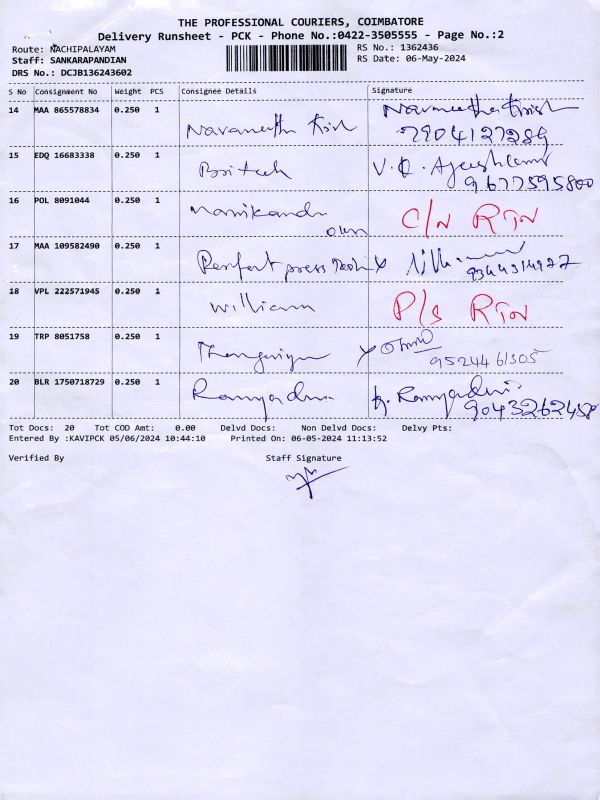 THE PROFESSIONAL COURIERS, COIMBATORE
Delivery Runsheet - PCK - Phone No.:0422-3505555 - Page No.:2
Route: NACHIPALAYAM RS No.: 1362436
Staff: SANKARAPANDIAN RS Date: 06-May-2024
DRS No.: DCJB136243602
S No Consignment No Weight PCS Consignee Details Signature
14 MAA 865578834 0.250 1
Navaneetha Krish Navaneetha Krish
7904127289
15 EDQ 16683338 0.250 1
British V.
9677595800
16 POL 8091044 0.250 1
Manikandan C/N RTN
17 MAA 109582490 0.250 1
Perfect press x
9344314927
18 VPL 222571945 0.250 1
William P/S RTN
19 TRP 8051758 0.250 1
x
9524461305
20 BLR 1750718729 0.250 1
Ramyadevi Ramyadevi
9043262458
Tot Docs: 20 Tot COD Amt: 0.00 Delvd Docs: Non Delvd Docs: Delvy Pts:
Entered By :KAVIPCK 05/06/2024 10:44:10 Printed On: 06-05-2024 11:13:52
Verified By Staff Signature